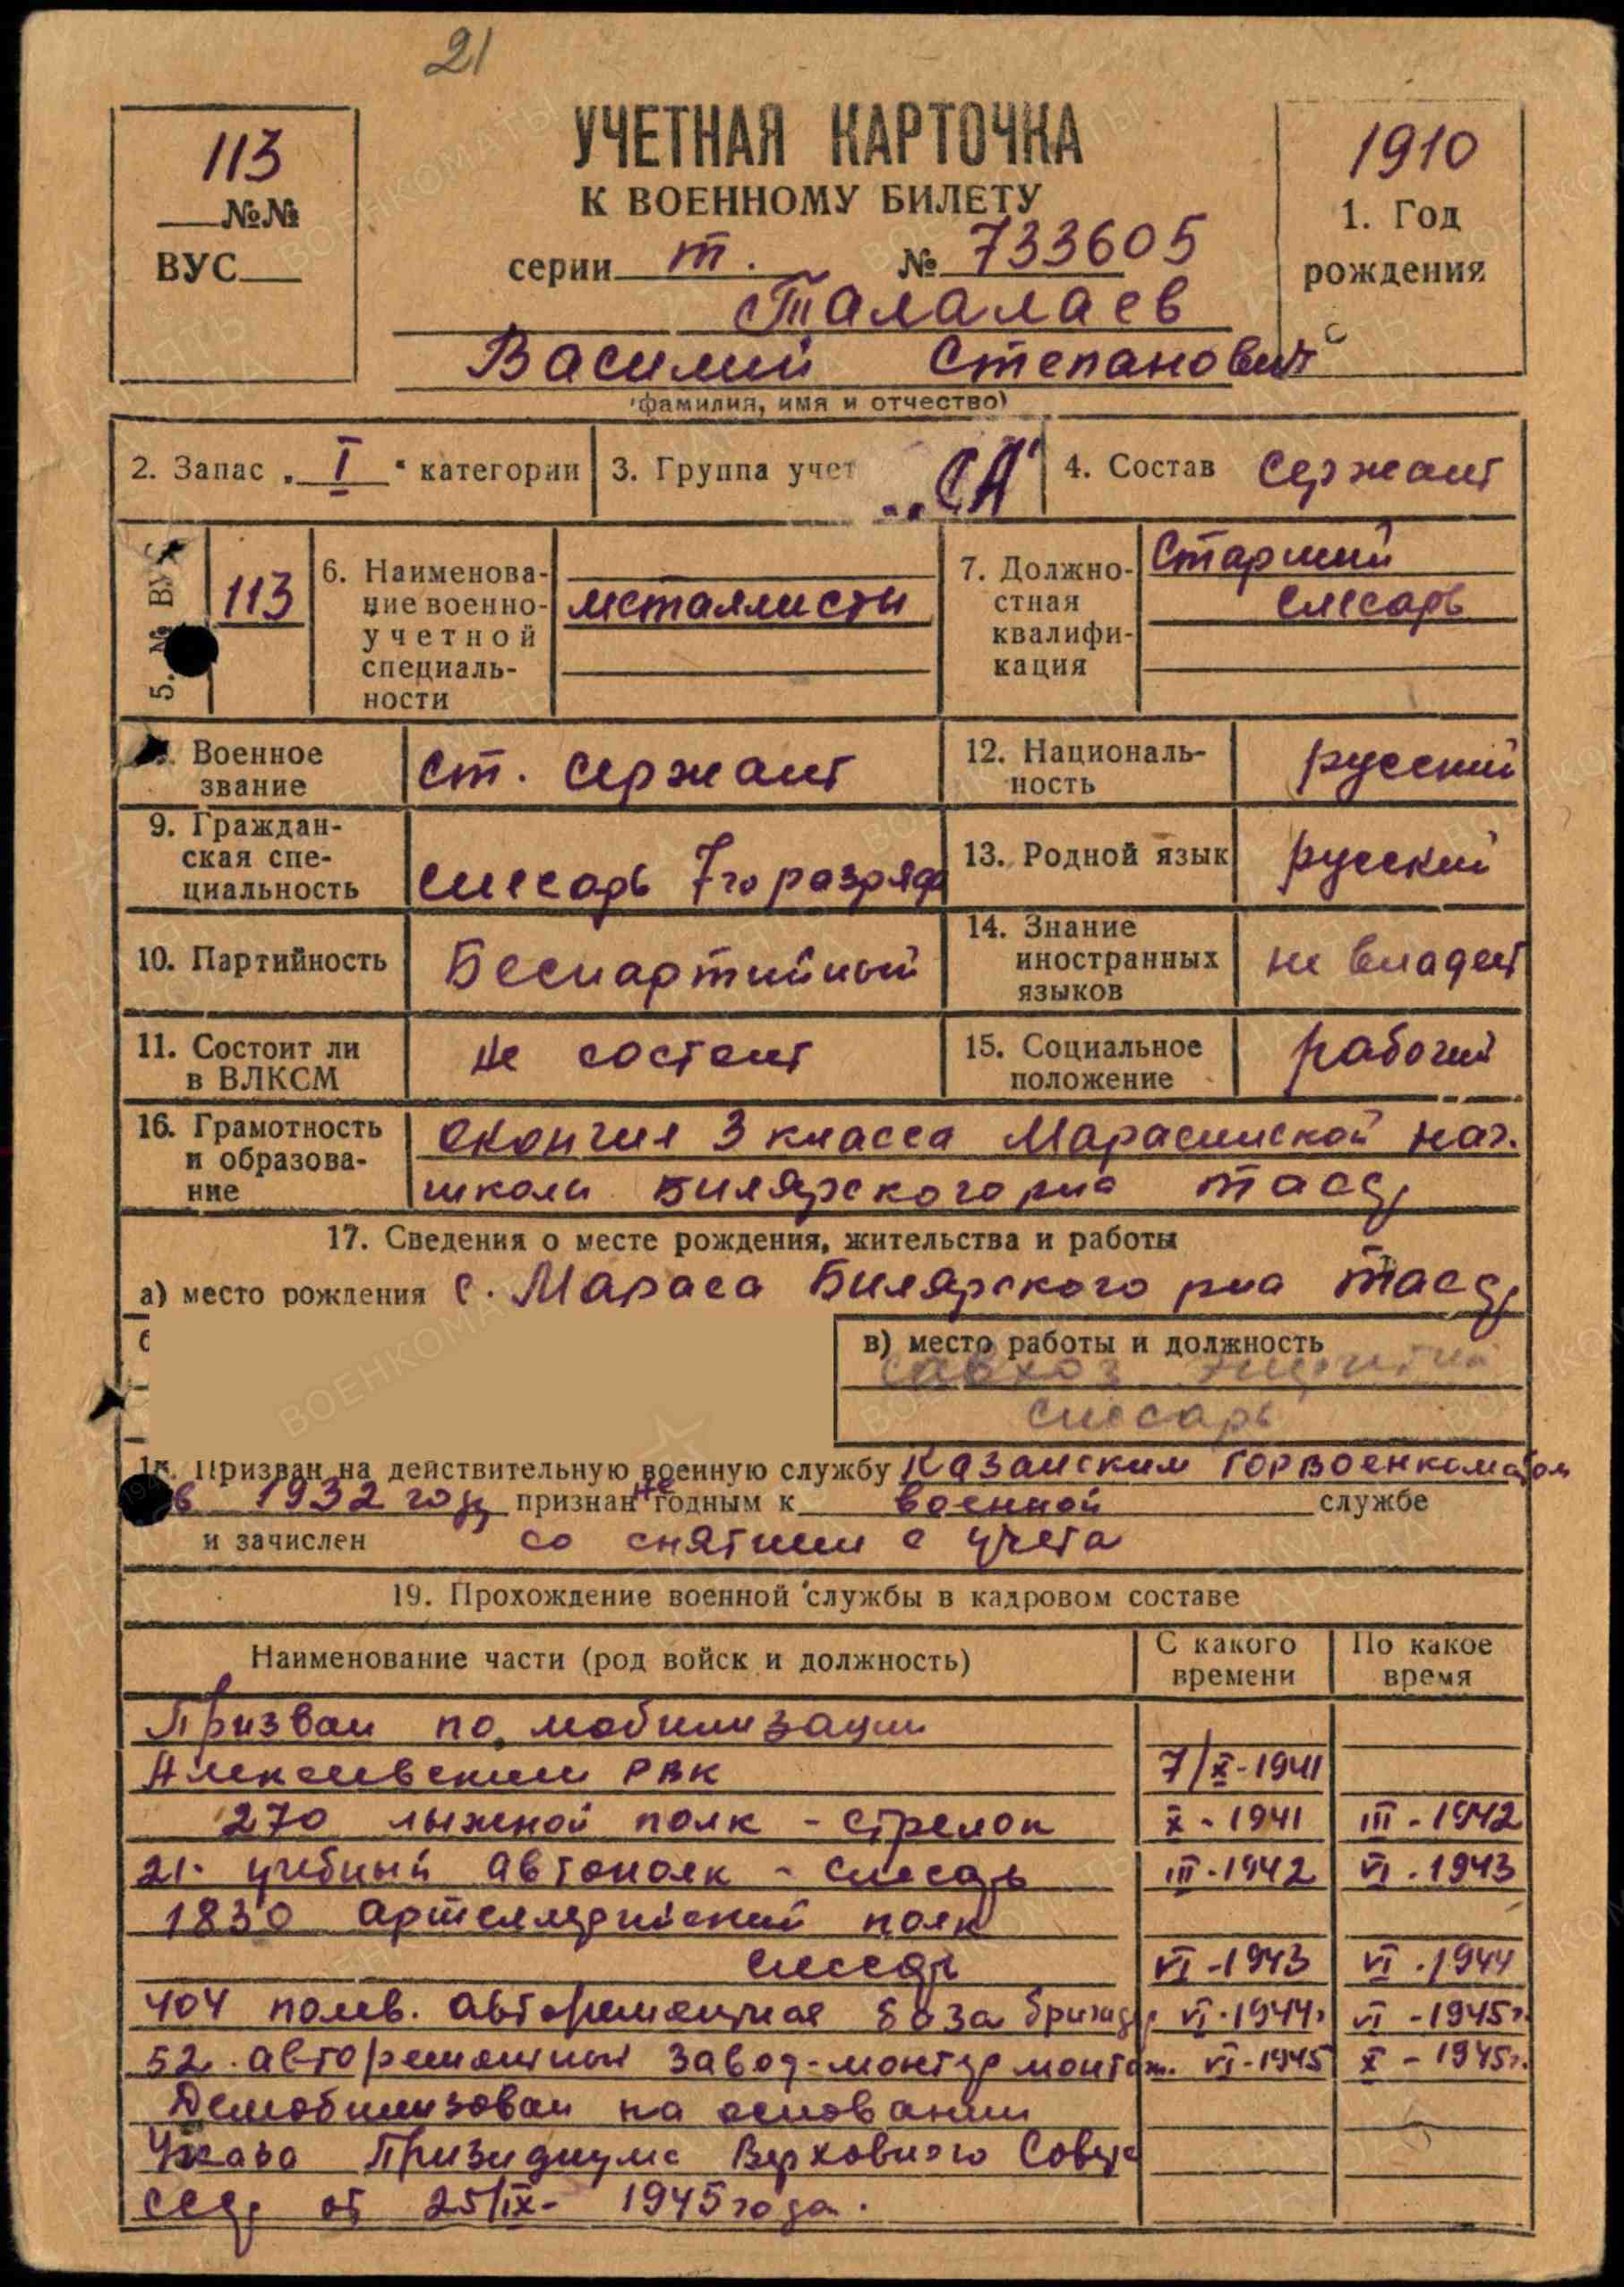 21
113
№№
ВУС
УЧЕТНАЯ КАРТОЧКА
К ВОЕННОМУ БИЛЕТУ
серии т. № 733605
1910
1. Год
рождения
Талалаев
Василий Степанович
(фамилия, имя и отчество)
2. Запас „ I “ категории
3. Группа учет „СА"
4. Состав сержант
5. № ВУС 113
6. Наименова-
ние военно-
учетной
специаль-
ности
металлисты
7. Должно-
стная
квалифи-
кация
Старший
слесарь
Военное
звание
ст. сержант
12. Националь-
ность
русский
9. Граждан-
ская спе-
циальность
слесарь 7го разряда
13. Родной язык русский
10. Партийность Беспартийный
14. Знание
иностранных
языков
не владеет
11. Состоит ли
в ВЛКСМ
не состоит
15. Социальное
положение
рабочий
16. Грамотность
и образова-
ние
окончил 3 класса Марасинской нач.
школы Билярского р-на ТАССР
17. Сведения о месте рождения, жительства и работы
а) место рождения с. Мараса Билярского р-на ТАССР
в) место работы и должность
совхоз
слесарь
18. Призван на действительную военную службу Казанским Горвоенкоматом
в 1932 году признан не годным к военной службе
и зачислен со снятием с учета
19. Прохождение военной службы в кадровом составе
Наименование части (род войск и должность)
С какого
времени
По какое
время
Призван по мобилизации
Алексеевским РВК 7/X-1941
270 лыжной полк - стрелок X - 1941 III - 1942
21. учебный автополк - слесарь III-1942 VI - 1943
1830 артеллерийский полк
слесарь VI - 1943 VI - 1944
404 полев. авторемонтная база бригадир VI - 1944г. VI - 1945г.
52. авторемонтный завод - монтер монтаж. VI-1945 X - 1945г.
Демобилизован на основании
Указа Призидиума Верховного Совета
СССР от 25/IX- 1945 года.